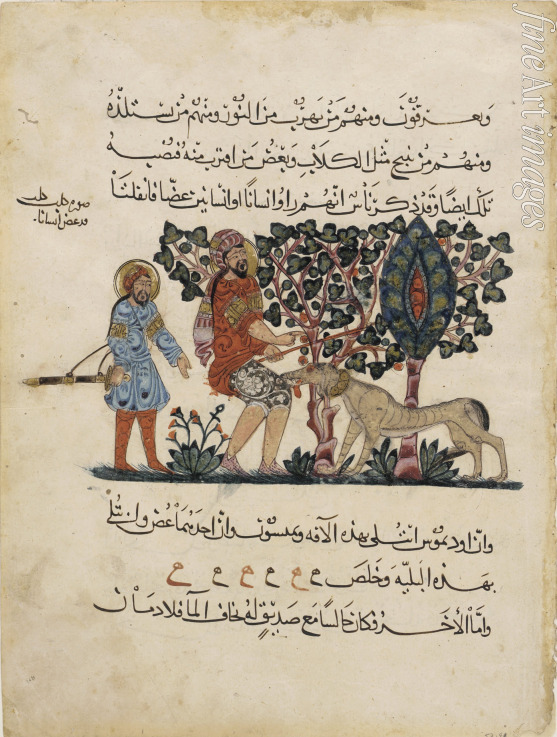 ويعرقون ومنهم من يهرب من النور ومنهم من يستلذه
ومنهم من ينبح مثل الكلاب وبعض من اقترب منه فنصيبه
تلك ايضا وقد ذكر ناس انهم راوا انسانا او انسانين عضا فانفلتا
صوره كلب كلب
قد عض انسانا
وان اوديموس ابتلي بهذه الافه وثميسون وان احدهما عض وابتلي
بهذه البليه وخلص ه ه ه ه ه ه
واما الاخر فكان جالسا مع صديق له يخاف الما فلا دمان
fine Art images